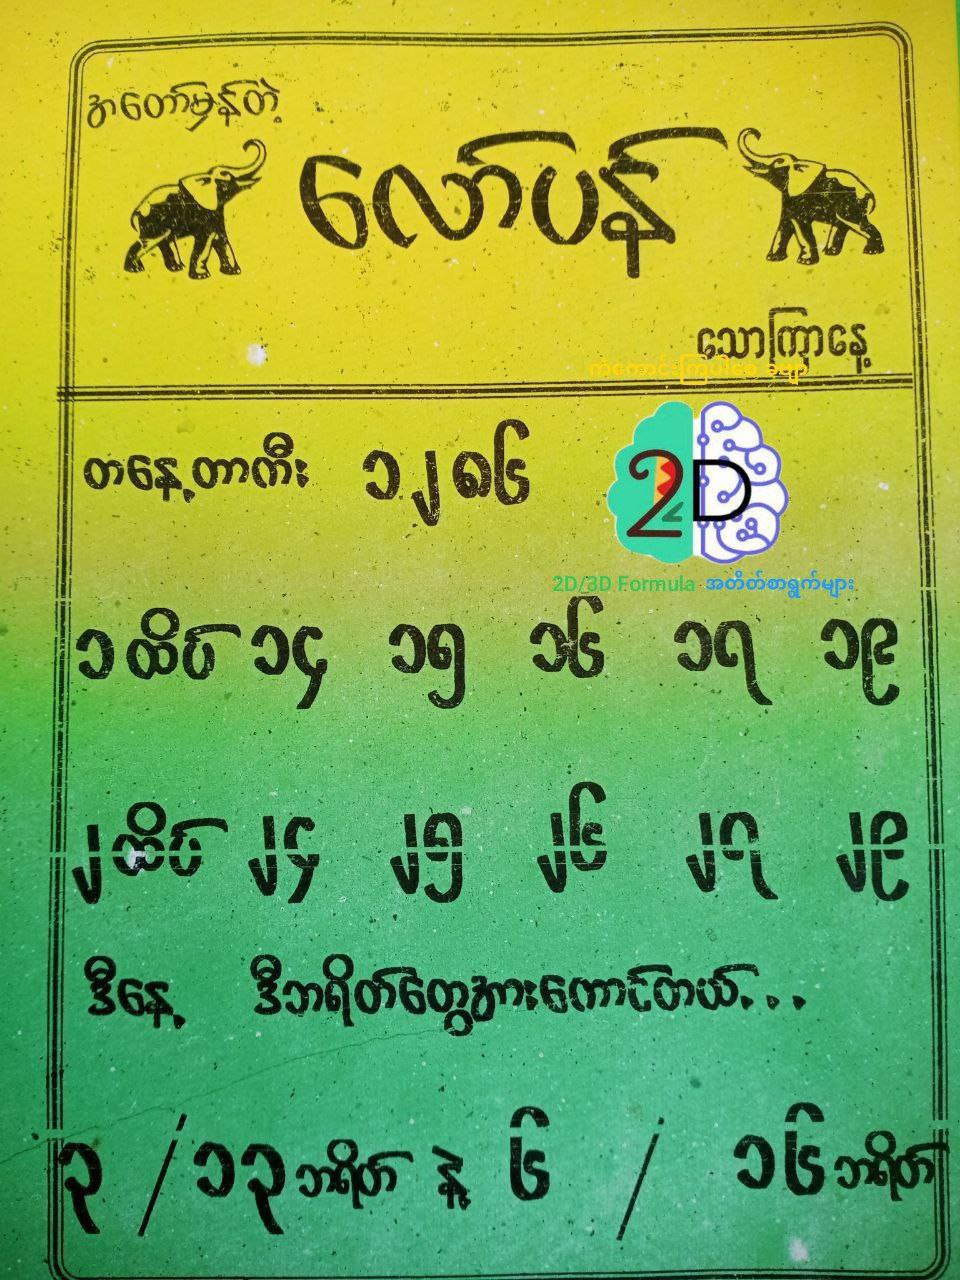 အတော်မှန်တဲ့
လော်ပန်
သောကြာနေ့
ကံကောင်းကြပါစေ ခဗျာ
တနေ့တာကီး ၁၂၈၆
2D
2D/3D Formula အတိတ်စာရွက်များ
၁ထိပ် ၁၄ ၁၅ ၁၆ ၁၇ ၁၉
၂ထိပ် ၂၄ ၂၅ ၂၆ ၂၇ ၂၉
ဒီနေ့ ဒီဘရိတ်တွေအားကောင်တယ်...
၃ / ၁၃ဘရိတ် နဲ့ ၆ / ၁၆ဘရိတ်